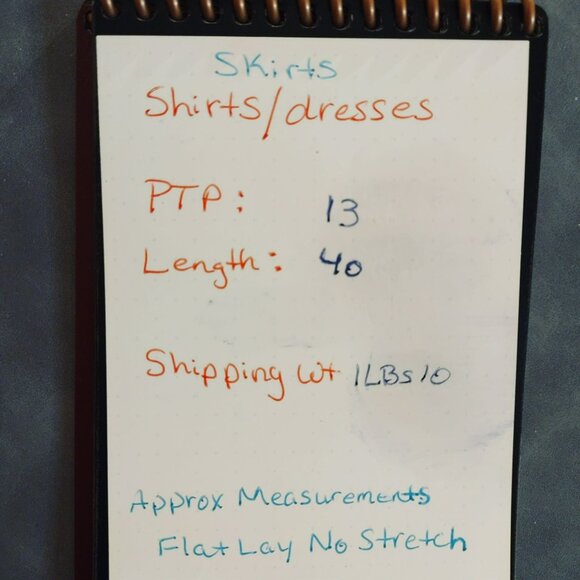 Skirts
Shirts/dresses
PTP: 13
Length: 40
Shipping Wt 1LBs10
Approx Measurements
Flat Lay No Stretch